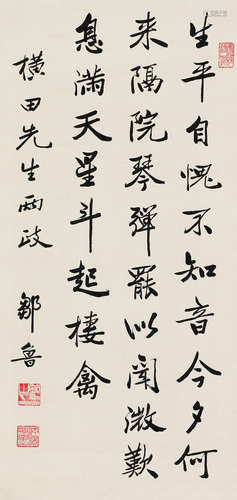 生平自愧不知音今夕何
来隔院琴弹罢似闻微歎
息满天星斗起棲禽
横田先生两政
鄒魯